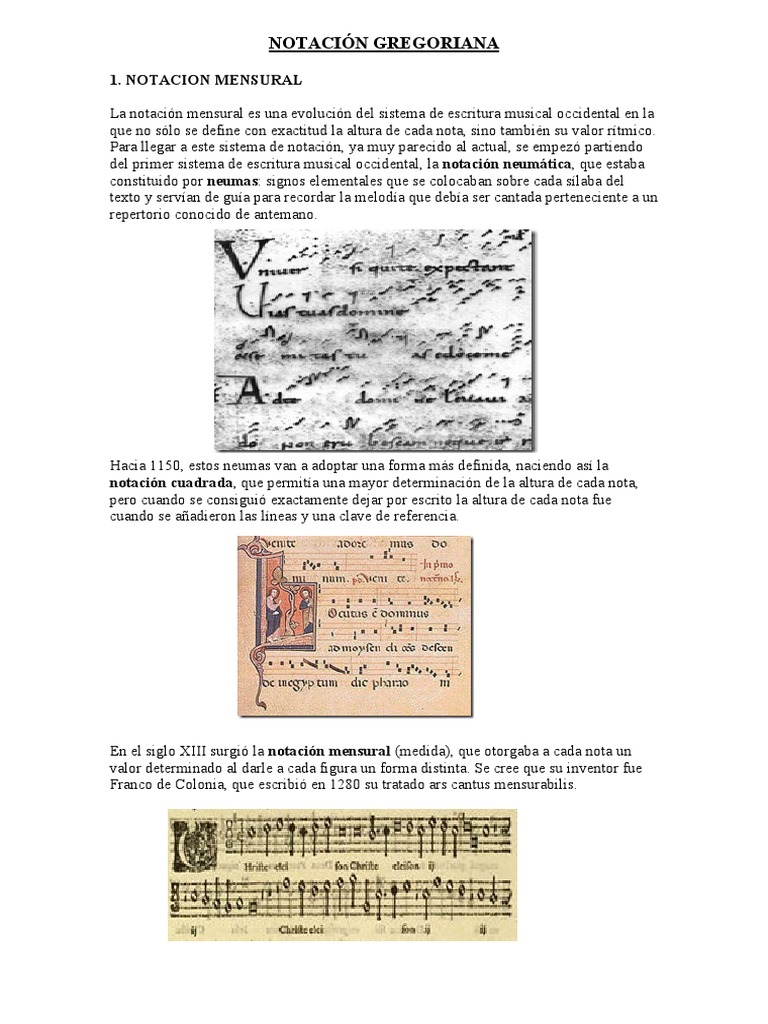 NOTACIÓN GREGORIANA
1. NOTACION MENSURAL
La notación mensural es una evolución del sistema de escritura musical occidental en la
que no sólo se define con exactitud la altura de cada nota, sino también su valor rítmico.
Para llegar a este sistema de notación, ya muy parecido al actual, se empezó partiendo
del primer sistema de escritura musical occidental, la notación neumática, que estaba
constituido por neumas: signos elementales que se colocaban sobre cada sílaba del
texto y servían de guía para recordar la melodía que debía ser cantada perteneciente a un
repertorio conocido de antemano.
si quite expectant
domine
Hacia 1150, estos neumas van a adoptar una forma más definida, naciendo así la
notación cuadrada, que permitía una mayor determinación de la altura de cada nota,
pero cuando se consiguió exactamente dejar por escrito la altura de cada nota fue
cuando se añadieron las líneas y una clave de referencia.
venite adore mus do
mi num. Veni te.
ocutus dominus
ad moysen descen
de in egyptum dic pharao ni
En el siglo XIII surgió la notación mensural (medida), que otorgaba a cada nota un
valor determinado al darle a cada figura un forma distinta. Se cree que su inventor fue
Franco de Colonia, que escribió en 1280 su tratado ars cantus mensurabilis.
Hriste elei son Christe eleison ij
ij Christe elei son ij ij